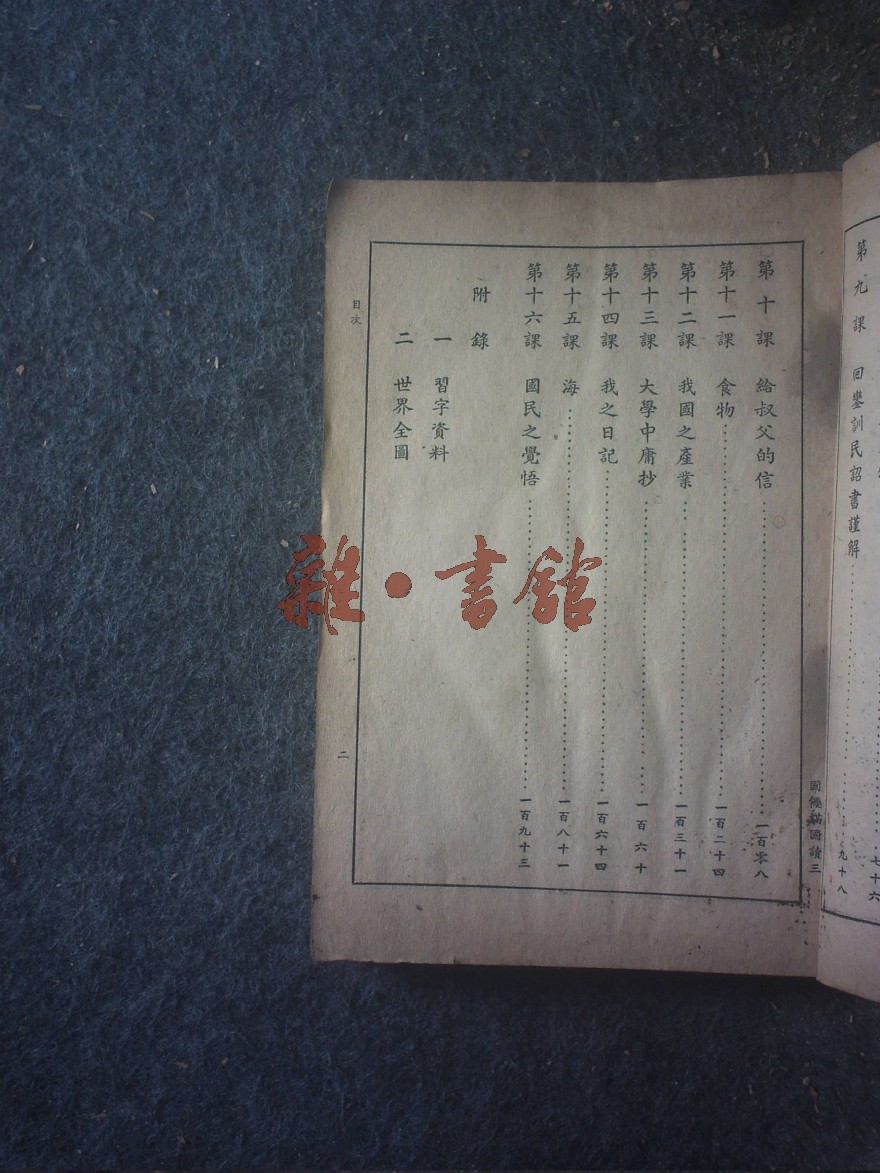 七十六
第九課 回鑾訓民詔書謹解……九十八
第十課 給叔父的信……一百零八
第十一課 食物……一百二十四
第十二課 我國之產業……一百三十一
第十三課 大學中庸抄……一百六十
第十四課 我之日記……一百六十四
第十五課 海……一百八十一
第十六課 國民之覺悟……一百九十三
附錄
一 習字資料
二 世界全圖
目次
二
雜·書館